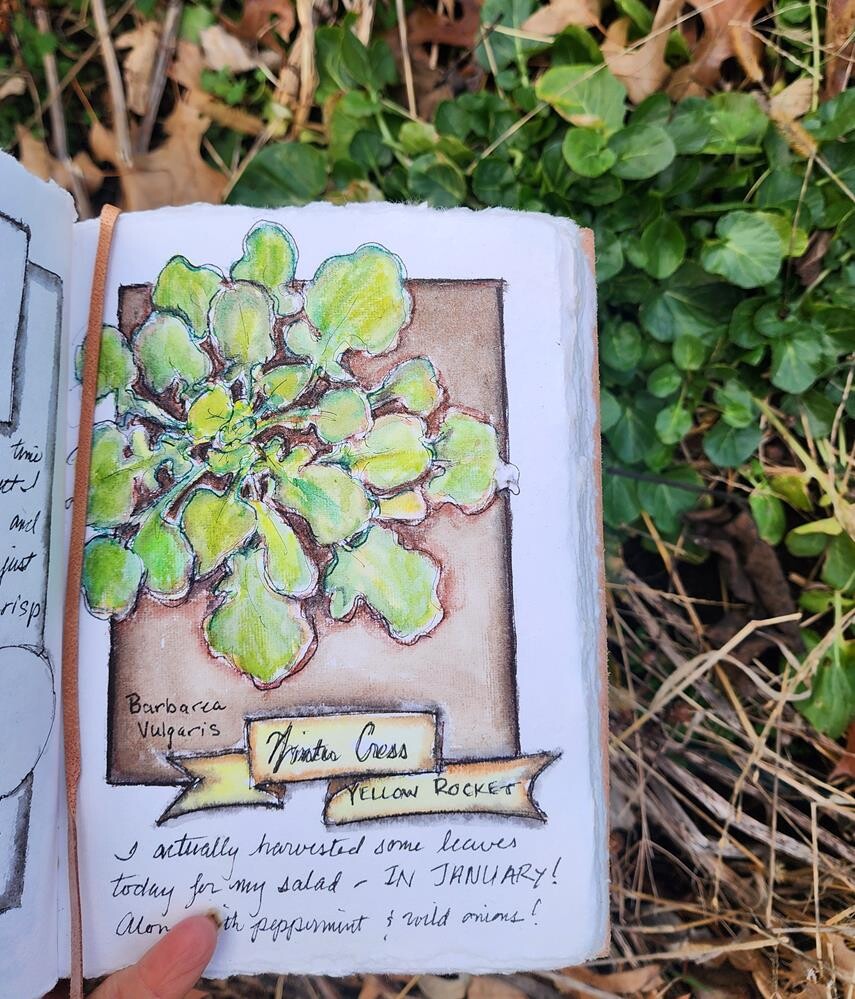 time
and
just
Barbarea
Vulgaris
Winter Cress
YELLOW ROCKET
I actually harvested some leaves
today for my salad - IN JANUARY!
peppermint & wild onions!